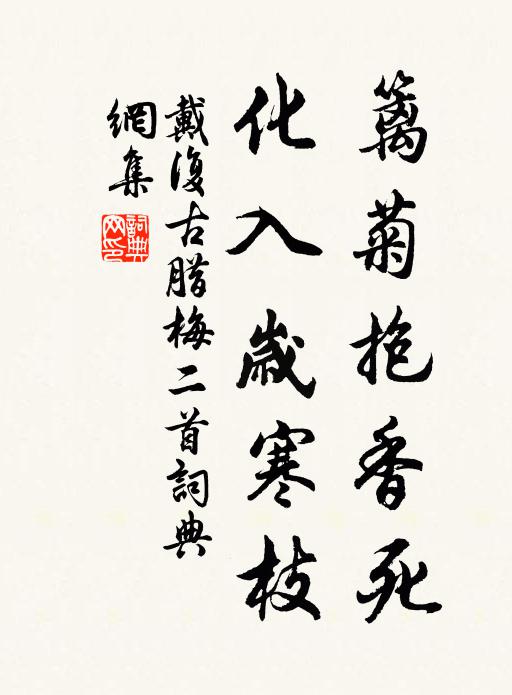 籬菊抱香死
化入歲寒枝
戴復古腊梅二首詞典
網集
詞典网印